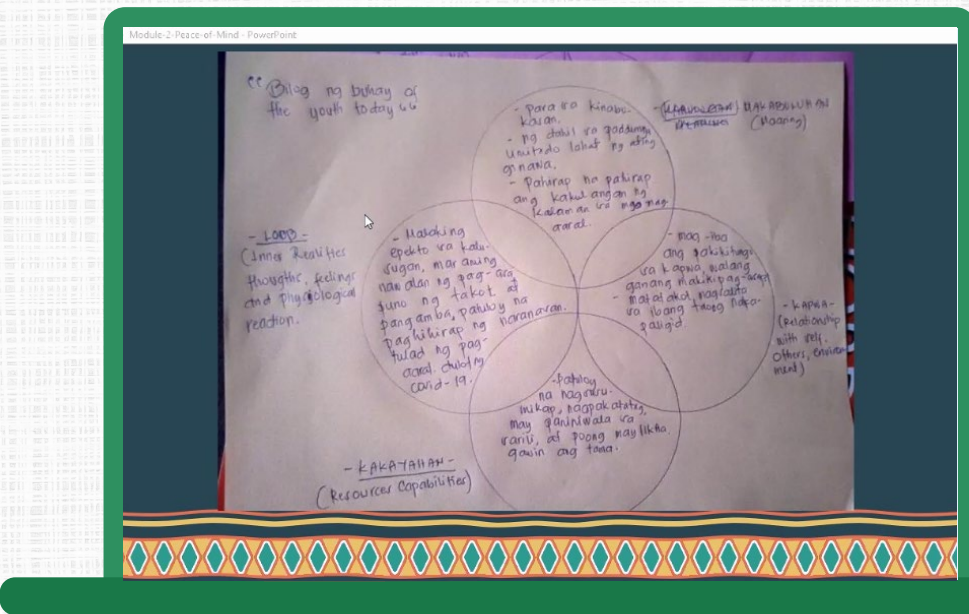 Module-2-Peace-of-Mind - PowerPoint
“ Bilog ng buhay of
the youth today “
- Para sa kinabu-
kasan.
- ng dahil sa
limitado lahat ng ating
ginawa.
- Pahirap na pahirap
ang kakulangan ng
kalaman sa mga mag-
aaral.
- MAKABULUHAN
(Meaning)
- LOOB -
(Inner Realities
thougths, feelings
and physiological
reaction.
- Malaking
epekto sa kalu-
sugan, maraming
nawalan ng pag-asa,
puno ng takot at
pangamba, patuloy na
paghihirap ng naranasan.
tulad ng pag-
aaral. dulot ng
covid-19.
- mag-iba
ang pakikitungo
sa kapwa, walang
ganang makikipag-usap
- matatakot,
sa ibang taong napa-
paligid.
- KAPWA -
(Relationship
with self,
Others, environ-
ment)
- Patuloy
na nagsusu-
mikap, nagpakatatag,
may paniniwala sa
sarili, at poong maylikha,
gawin ang tama.
- KAKAYAHAN -
(Resources Capabilities)